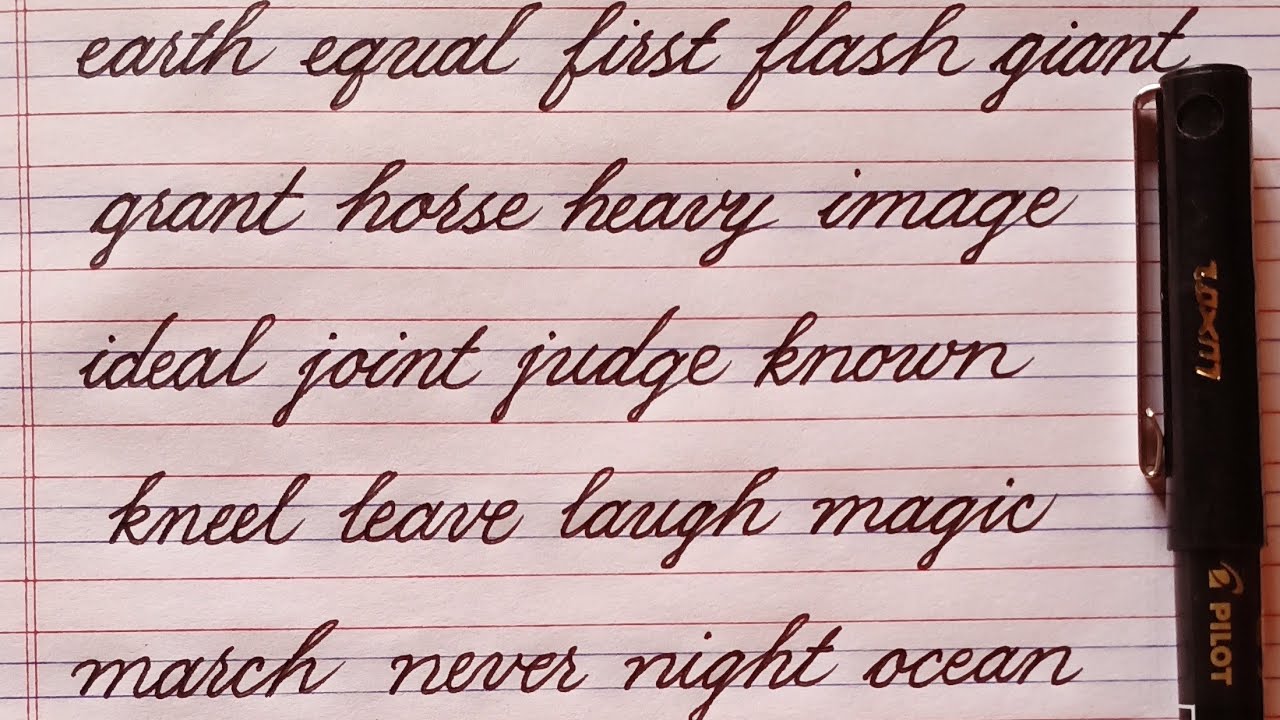 earth equal first flash giant
grant horse heavy image
ideal joint judge known
kneel leave laugh magic
march never night ocean
LUXOR
PILOT